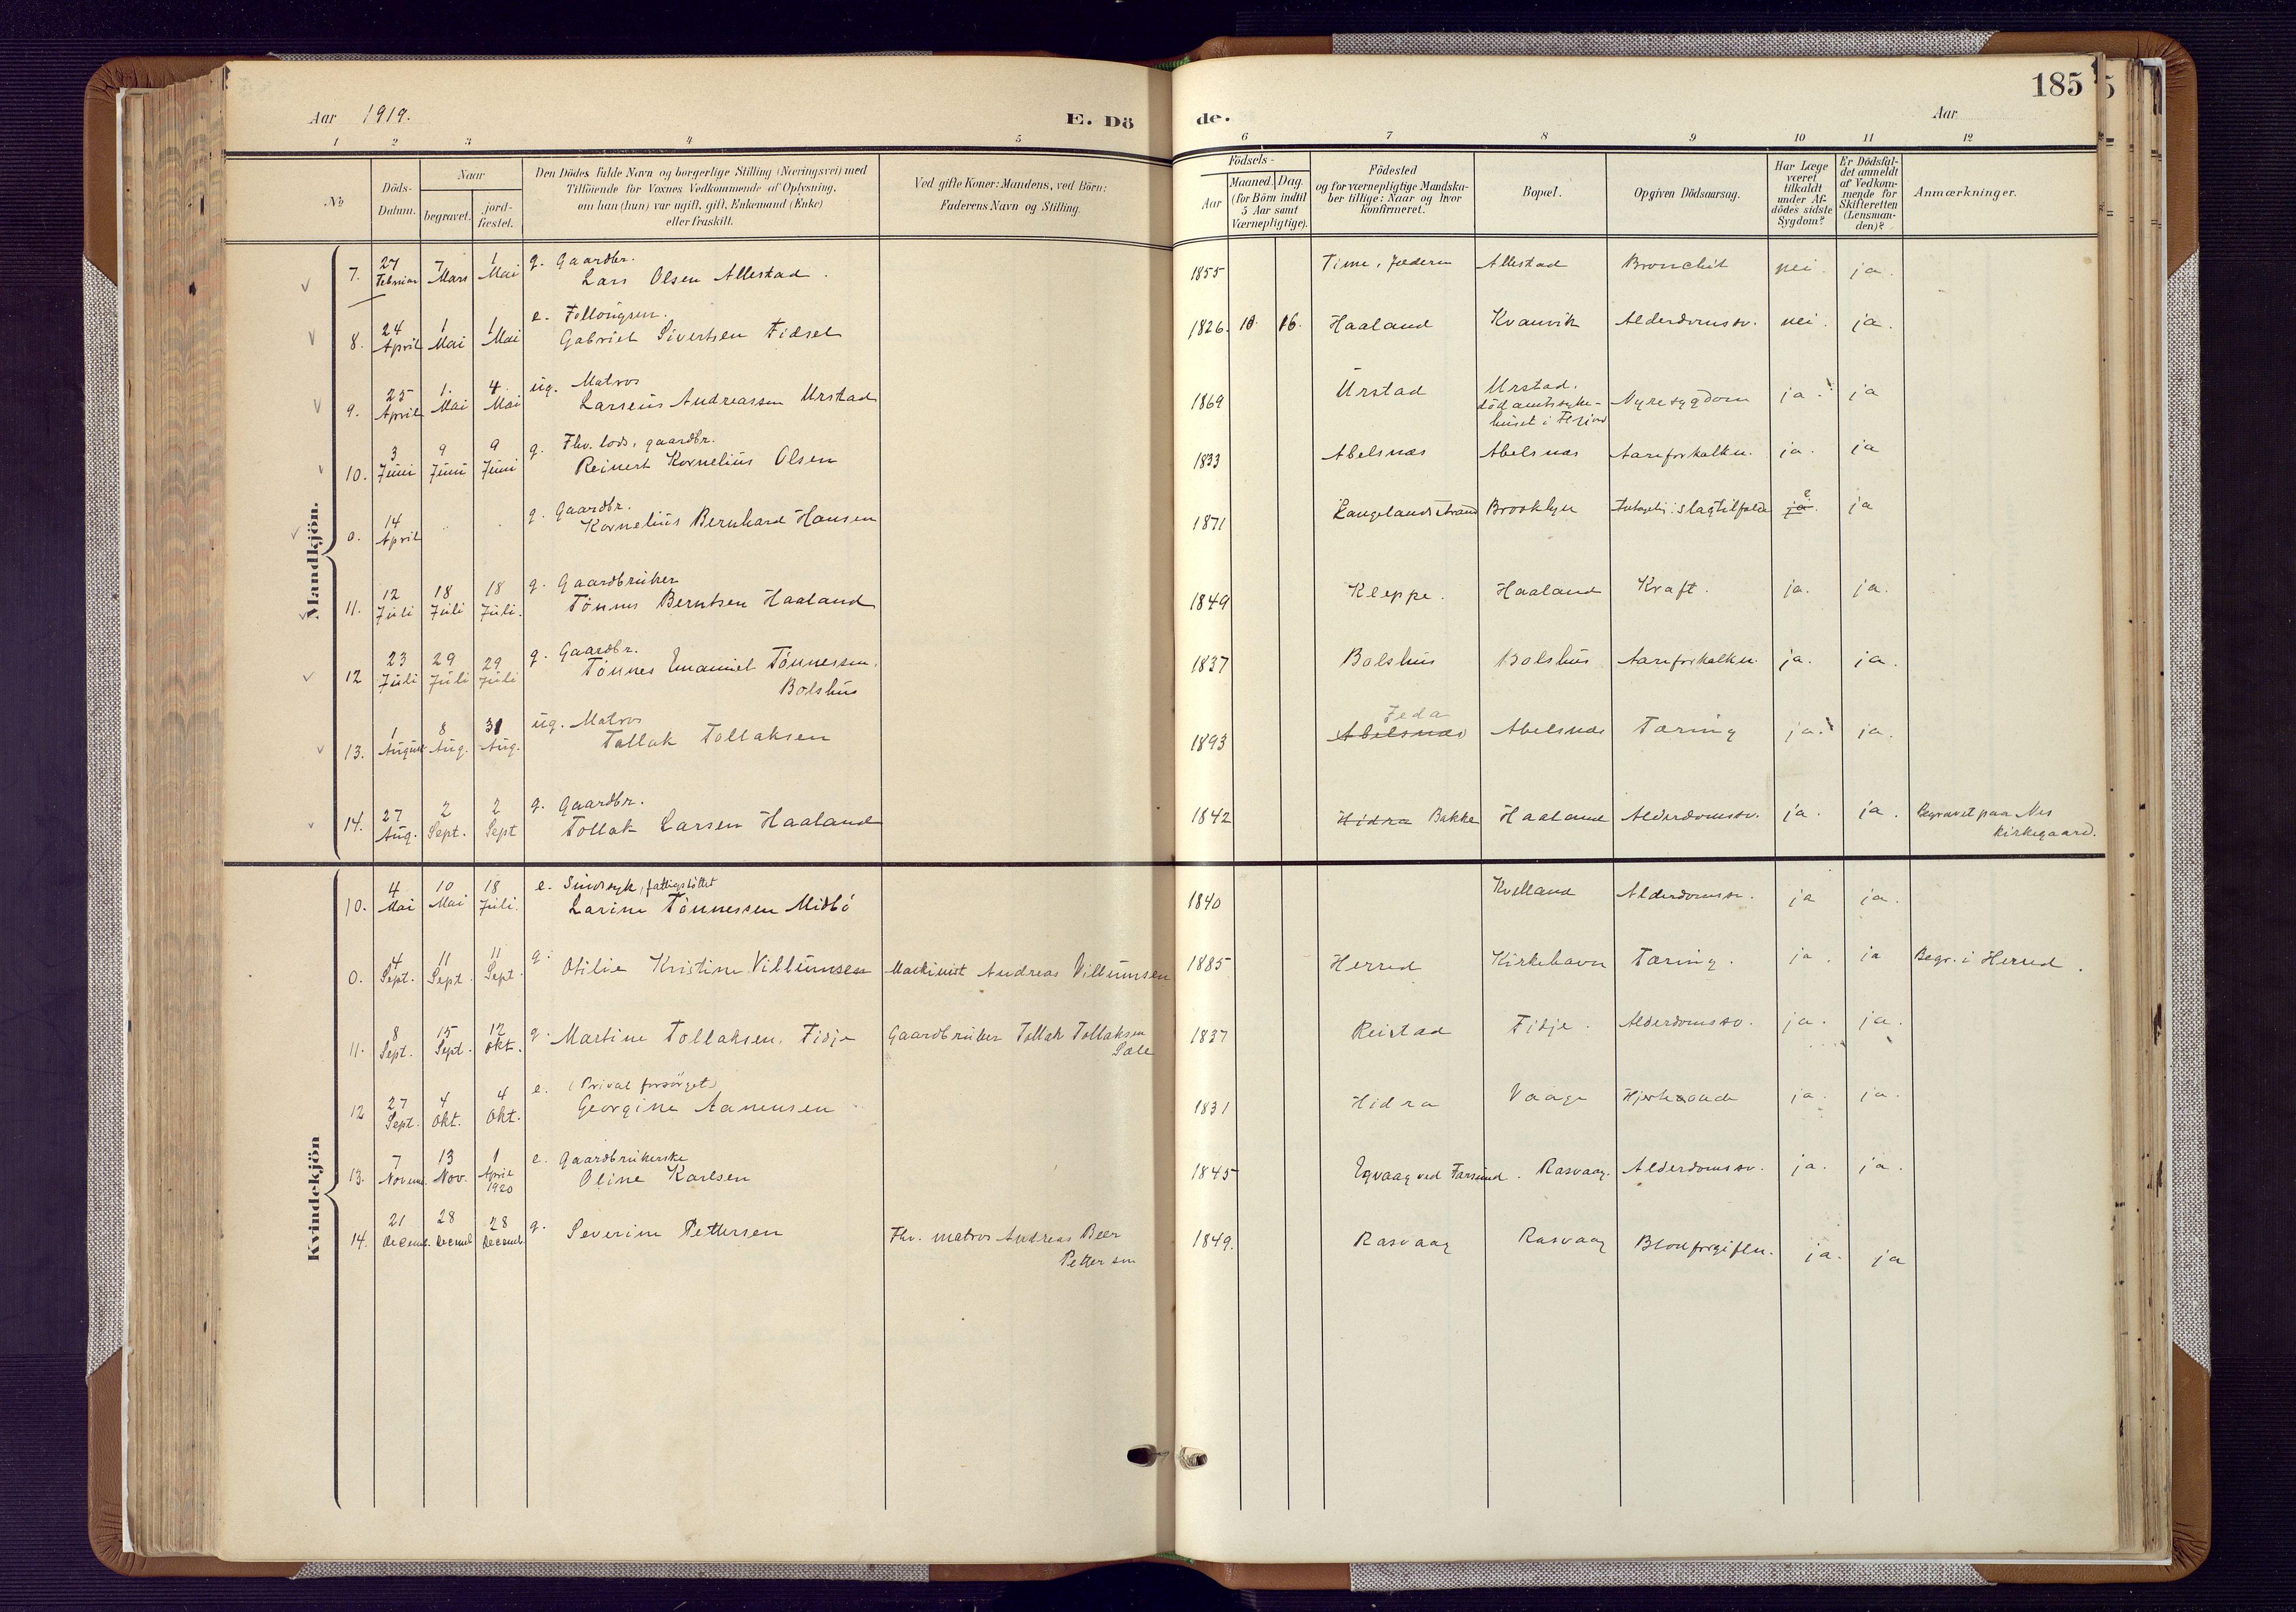 185
Aar 1919.
E. Dö de.
Aar
1 2 3 4 5 6 7 8 9 10 11 12
No
Döds-
Datum.
Naar
begravet.
jord-
fæstet.
Den Dödes fulde Navn og borgerlige Stilling (Næringsvei) med
Tilföiende for Voxnes Vedkommende af Oplysning,
om han (hun) var ugift, gift, Enkemand (Enke)
eller fraskilt.
Ved gifte Koner: Mandens, ved Börn:
Faderens Navn og Stilling.
Födsels-
Aar
Maaned. Dag.
(for Börn indtil
5 Aar samt
Værnepligtige).
Födested
og for værnepligtige Mandska-
ber tillige: Naar og hvor
konfirmeret.
Bopæl.
Opgiven Dödsaarsag.
Har Læge
været
tilkaldt
under Af-
dödes sidste
Sygdom?
Er Dödsfal-
det anmeldt
af Vedkom-
mende for
Skifteretten
(Lensman-
den)?
Anmærkninger.
Mandkjön.
7. 27 Februar 7 Mars 1 Mai g. Gaardbr.
Lars Olsen Allestad. 1855 Time, Jæderen Allestad Bronchit nei. ja.
8. 24 April 1 Mai 1 Mai e. Föllöngsm.
Gabriel Sivertsen Fidsel 1826. 10. 16. Haaland Kvanvik Alderdomssv. nei. ja.
9. 25 April 1. Mai 4. Mai ug. Matros
Larseus Andreassen Urstad 1869 Urstad Urstad.
död amtssyke-
huset i Flekkefjord Nyresygdom ja. ja
10. 3 Juni 9 Juni 9 Juni g. Fhv. lods, gaardbr.
Reinert Kornelius Olsen 1833 Abelsnæs Abelsnæs Aareforkalkn. ja. ja
0. 14 April g. Gaardbr.
Kornelius Bernhard Hansen 1871 Langelandsstrand Brooklyn Antagelig slagtilfælde ja. ? ja
11. 12 Juli 18 Juli 18 Juli. g. Gaardbruker
Tönnes Berntsen Haaland 1849 Kleppe. Haaland Kræft. ja. ja.
12 23 Juli 29 Juli 29 Juli g. Gaardbr.
Tönnes Emanuel Tönnessen.
Bolshus 1837 Bolshus Bolshus Aareforkalkn. ja. ja.
13. 1 August 8 Aug. 31 Aug. ug. Matros
Tollak Tollaksen 1893 Feda
Abelsnæs Abelsnæs Tæring ja. ja.
14. 27 Aug. 2 Sept. 2 Sept g. Gaardbr.
Tollak Larsen Haaland 1842 Hidra Bakke Haaland Alderdomssv. ja. ja. Begravet paa Nes
kirkegaard.
Kvindekjön
10. 4 Mai 10 Mai 18 Juli. e. Sindssyk, fattigstöttet
Larine Tönnessen Midbö 1840 Kvelland Alderdomssv. ja ja.
0. 4 Sept. 11 Sept 11 Sept. g. Otilie Kristine Villumsen Maskinist Andreas Villumsen 1885 Herred Kirkehavn Tæring. ja. ja Begr. i Herred.
11. 8 Sept. 15 Sept. 12 Okt. g. Martine Tollaksen, Fidje Gaardbruker Tollak Tollaksen
Sæle 1837 Reistad Fidje. Alderdomssv. ja. ja.
12 27 Sept. 4 Okt. 4 Okt. e. (Privat forsörget)
Georgine Aanensen 1831 Hidra Vaage ja. ja.
13. 7 Novemb. 13 Nov. 1 April 1920 e. Gaardbrukerske
Oline Karlsen 1845 Egvaag ved Farsund. Rasvaag. Alderdomssv. ja. ja.
14. 21 Decemb. 28 Decemb 28 Decemb. g. Severine Pettersen Fhv. matros Andreas Beer
Pettersen 1849. Rasvaag Rasvaag Blodforgiftn. ja. ja